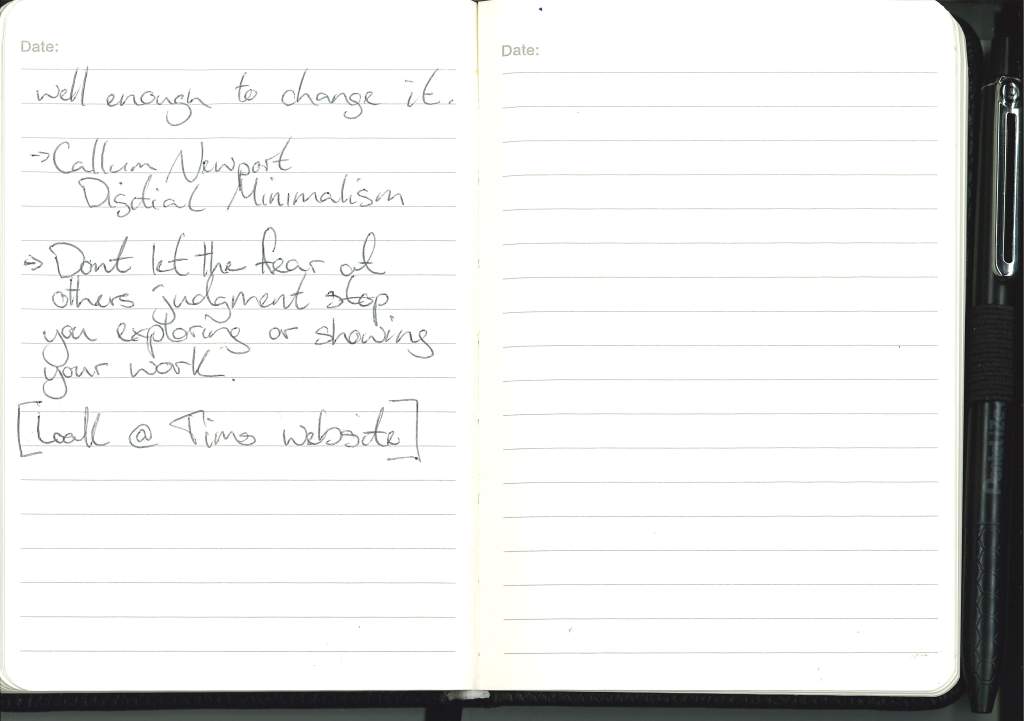 Date:
well enough to change it.
-> Callum Newport
Digitial Minimalism
-> Dont let the fear of
others judgment stop
you exploring or showing
your work.
[Look @ Tims website]
Date: